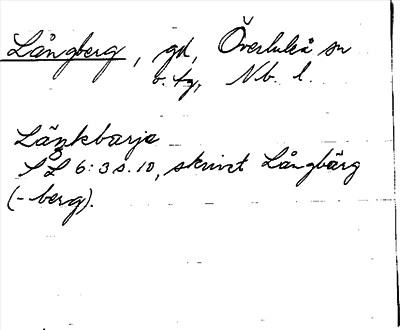 Långberg, gd, Överluleå sn
o. tg, Nb. l.
Länkbarje
SL 6:3 s. 10, skrivet Långbärg
(-berg).